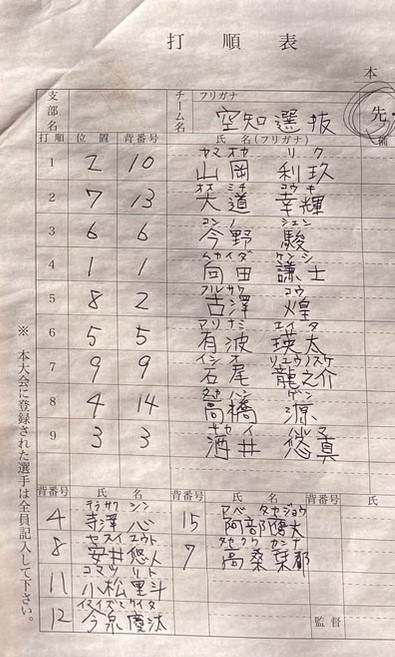 打順表
本
支部名
チーム名
フリガナ
空知選抜
先・
打順 位置 背番号 氏名(フリガナ)
ヤマオカ リク
1 2 10 山岡 利玖
オオミチ コウキ
2 7 13 大道 幸輝
コンノ シュン
3 6 6 今野 駿
ムカイダ ケンシ
4 1 1 向田 謙士
フルサワ コウ
5 8 2 古澤 煌
アリナミ エイタ
6 5 5 有波 瑛太
イシオ リュウノスケ
7 9 9 石尾 龍之介
ゲン
8 4 14 高橋 源
9 3 3 酒井 悠真
※本大会に登録された選手は全員記入して下さい。
背番号 氏名 背番号 氏名 氏
テラサワ シン
4 寺澤 心
ヤスイ ユウト
8 安井 悠人
コマツ リト
11 小松 里斗
イマイズミ ケイタ
12 今泉 慶汰
アベ
15 阿部 優太
タカクワ カンナ
7 高桑 栞那
監督